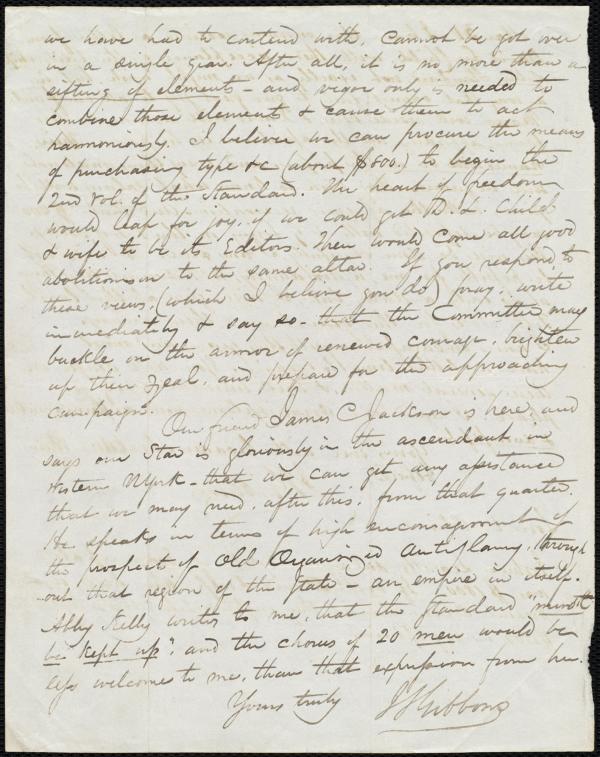 we have had to contend with, cannot be got over
in a single year. After all, it is no more than a
sifting of elements - and vigor only is needed to
combine those elements & cause them to act
harmoniously. I believe we can procure the means
of purchasing type &c (about $800.) to begin the
2nd vol. of the Standard. The heart of freedom
would leap for joy, if we could get D. L. Child
& wife to be its Editors. Then would come all good
abolitionism to the same altar. If you respond to
these views, (which I believe you do) pray, write
immediately & say so - that the Committee may
buckle on the armor of renewed courage, brighten
up their zeal, and prepare for the approaching
campaign.
Our friend James C Jackson is here, and
says our Star is gloriously in the ascendant in
Western NYork - that we can get any assistance
that we may need, after this, from that quarter.
He speaks in terms of high encouragement of
the prospect of Old Organized Antislavery, through
out that region of the State - an empire in itself.
Abby Kelly writes to me, that the Standard "must
be kept up", and the chorus of 20 men would be
less welcome to me, than that expression from her.
Yours truly J S Gibbons